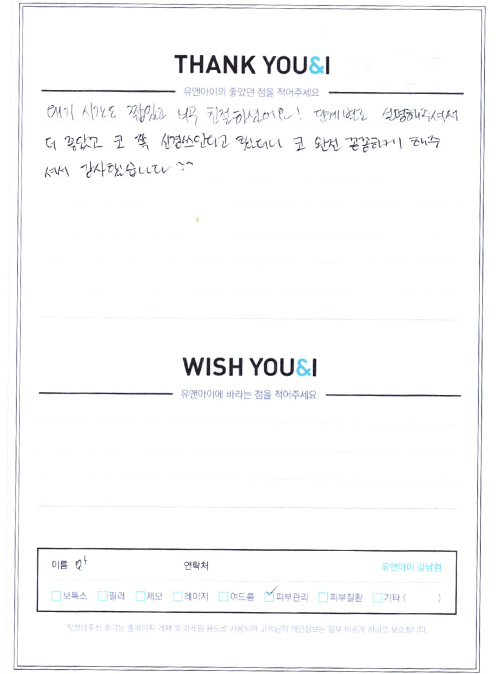 THANK YOU&I
유앤아이의 좋았던 점을 적어주세요
대기 시간도 짧았고 너무 친절하셨어요! 단계별로 설명해주셔서
더 좋았고 코 쪽 신경쓰인다고 했더니 코 완전 꼼꼼하게 해주
셔서 감사했습니다 ^^
WISH YOU&I
유앤아이에 바라는 점을 적어주세요
이름 연락처 유앤아이 강남점
보톡스 필러 제모 레이저 여드름 ✓피부관리 피부질환 기타 ( )
작성해주신 후기는 홈페이지 게재 및 마케팅 용도로 사용되며 고객님의 개인정보는 일부 비공개 처리로 보호됩니다.